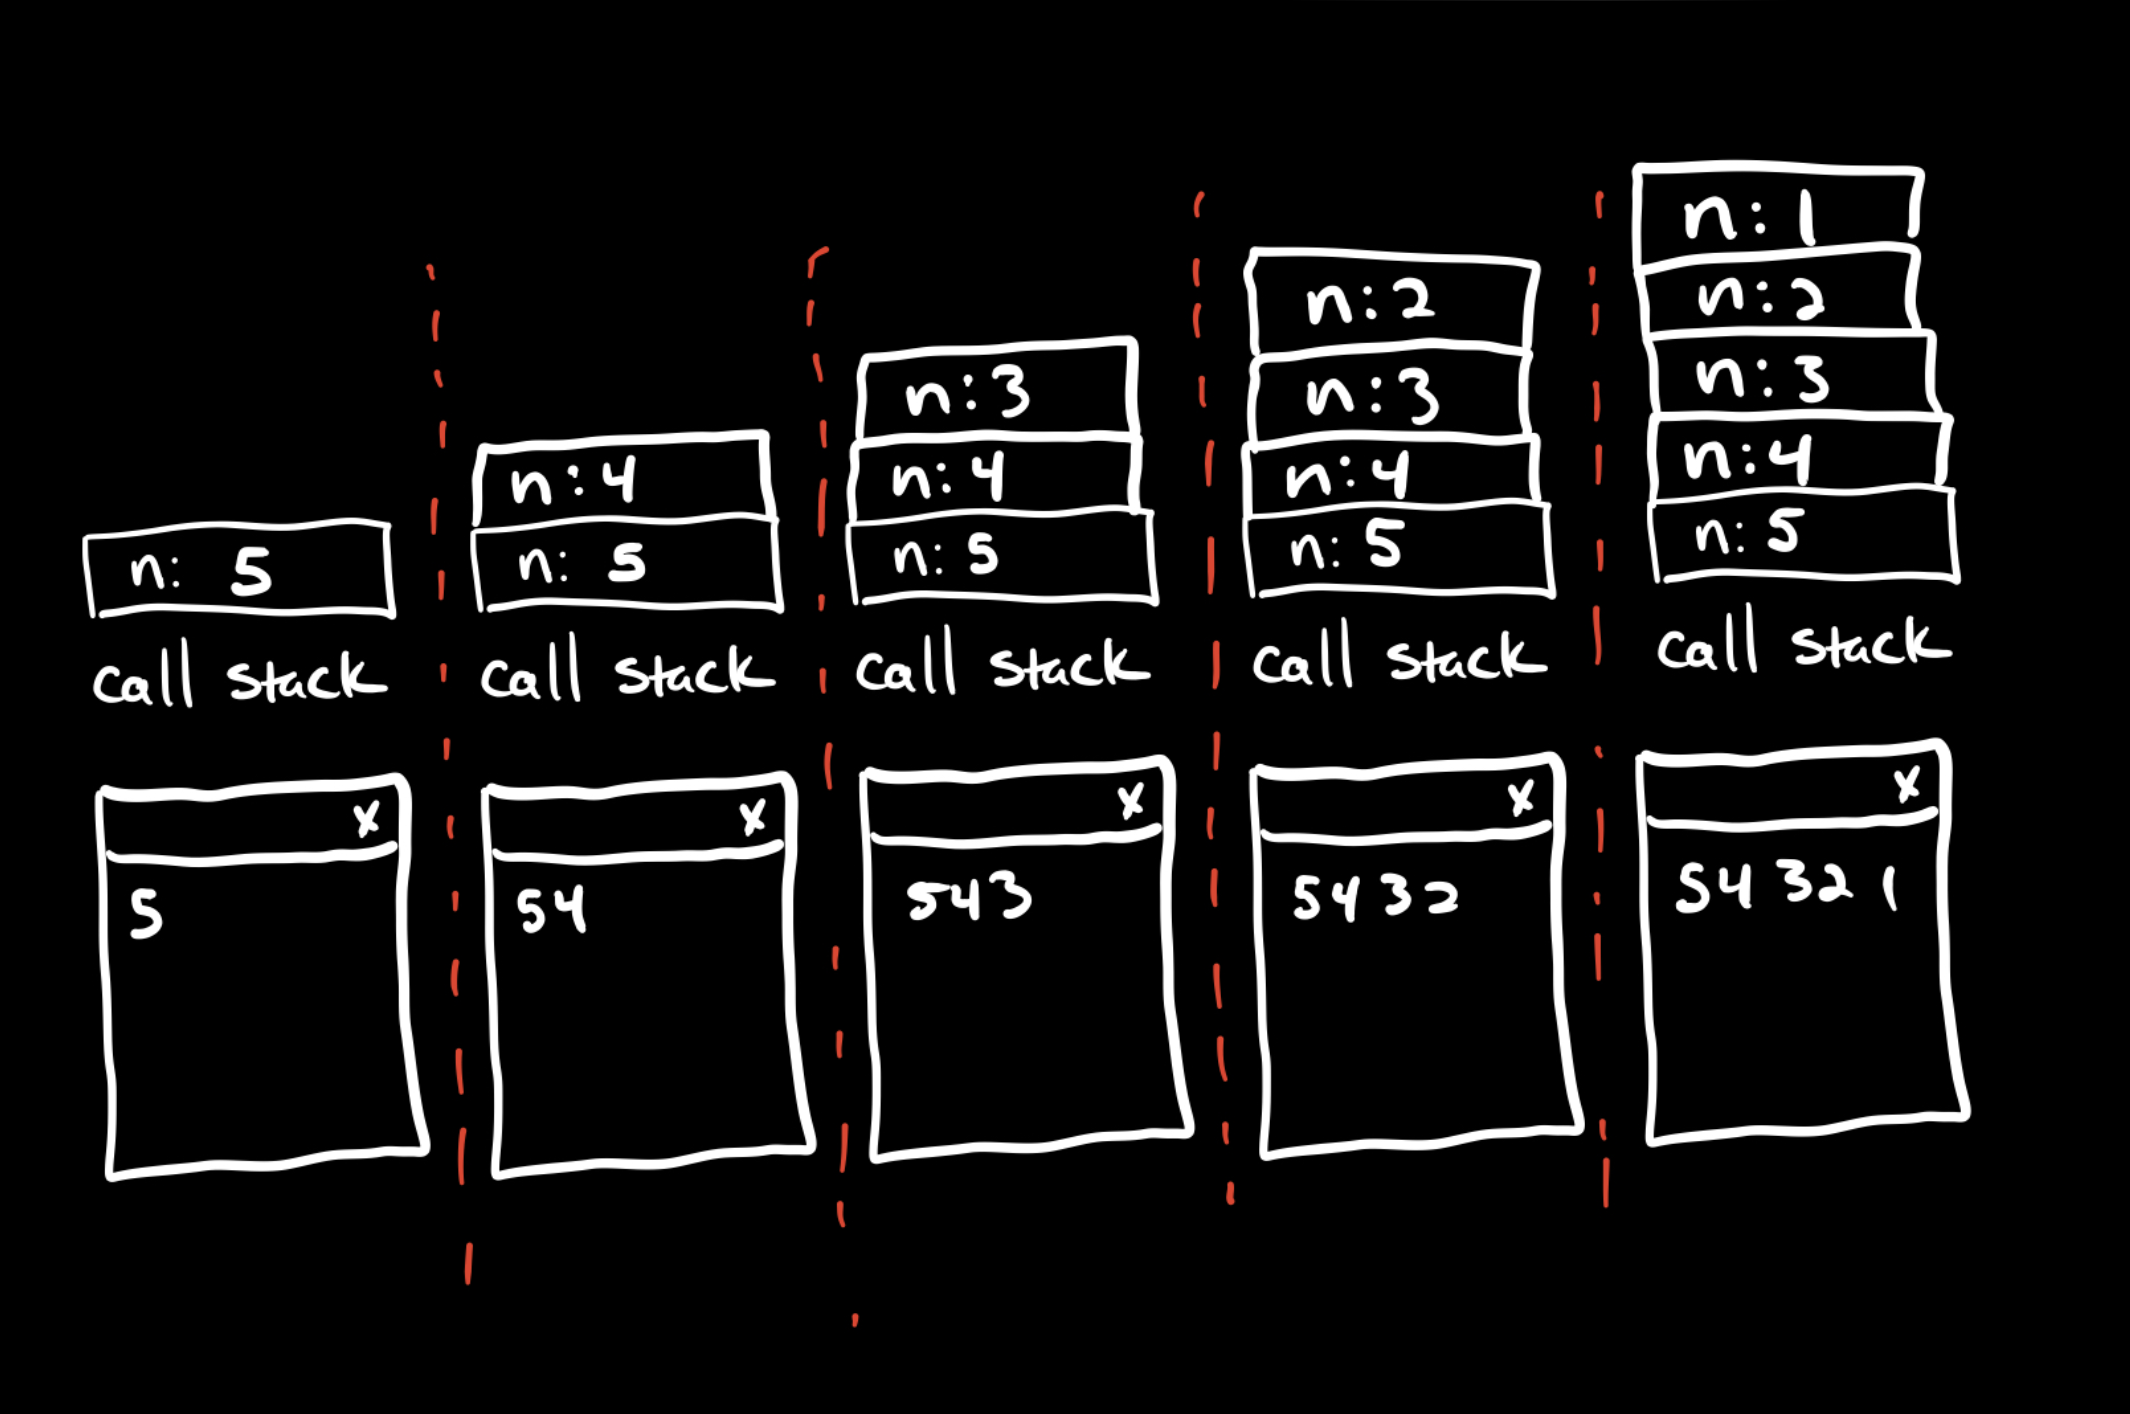 n: 5
call stack
x
5
n: 4
n: 5
call stack
x
54
n: 3
n: 4
n: 5
call stack
x
543
n: 2
n: 3
n: 4
n: 5
call stack
x
5432
n: 1
n: 2
n: 3
n: 4
n: 5
call stack
x
54321